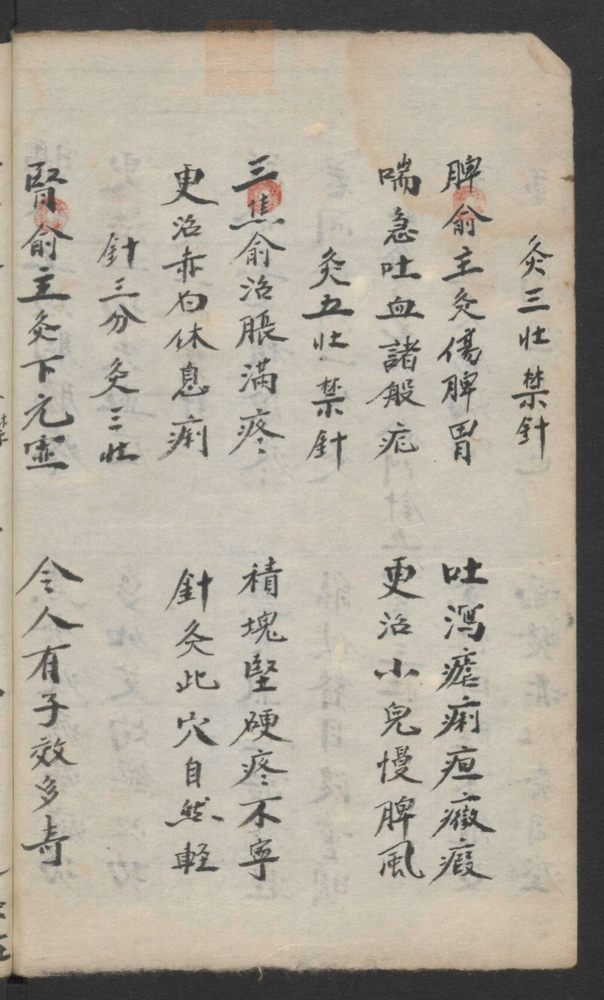 灸三壮禁針
脾俞主灸傷脾胃 吐瀉瘧痢疸癥瘕
喘急吐血諸般症 更治小兒慢脾風
灸五壮禁針
三焦俞治脹滿疼 積塊堅硬疼不寧
更治赤白休息痢 針灸此穴自然輕
針三分灸三壮
腎俞主灸下元虛 令人有子效多奇